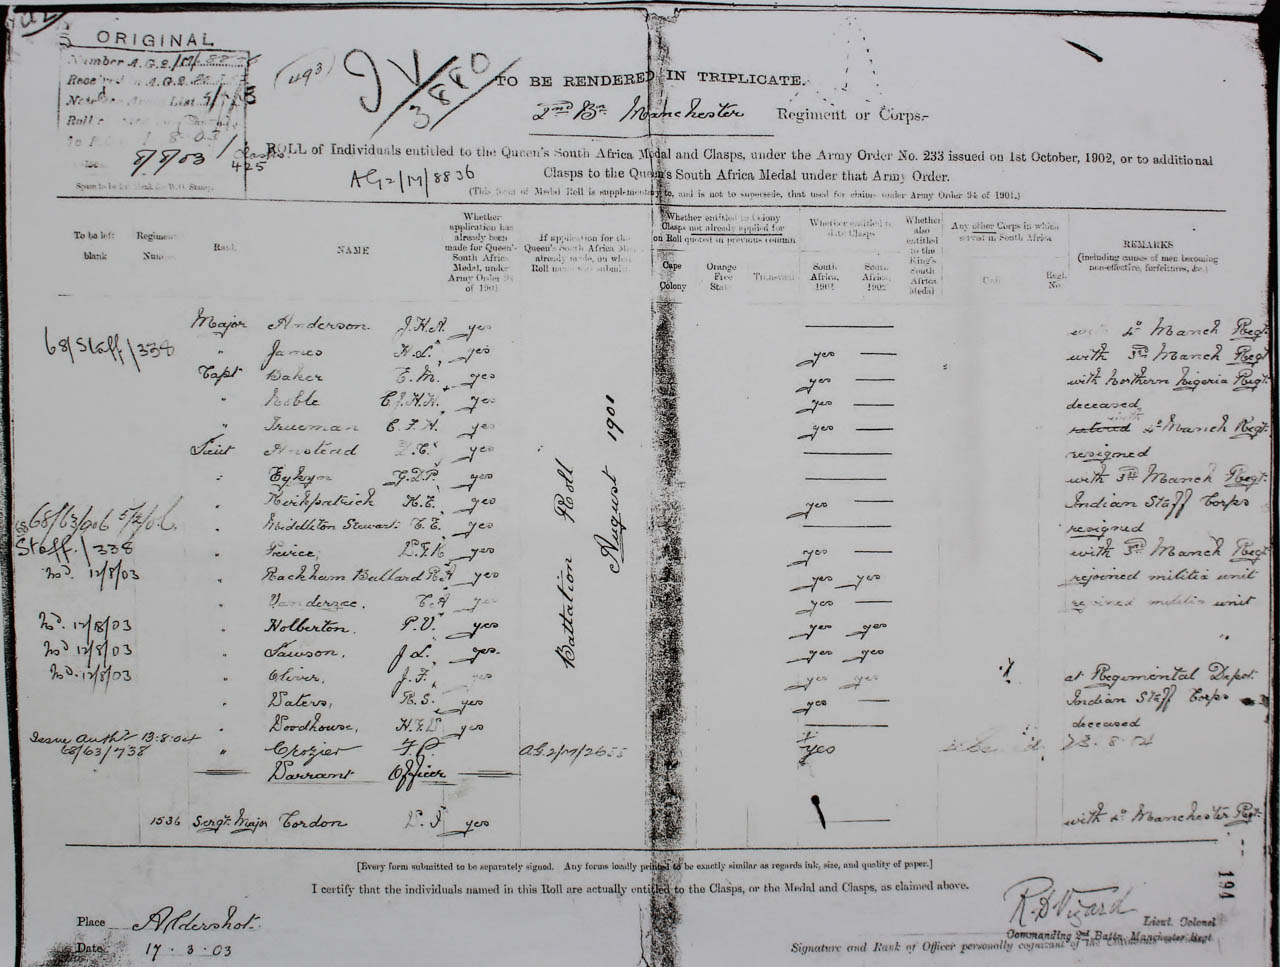 ORIGINAL
Number A.G.2/M/
A.G.2
List
8/8/03
Clasps
425
(493)
3880
AG2/M/8836
TO BE RENDERED IN TRIPLICATE.
2nd Bn Manchester Regiment or Corps.
ROLL of Individuals entitled to the Queen's South Africa Medal and Clasps, under the Army Order No. 233 issued on 1st October, 1902, or to additional
Clasps to the Queen's South Africa Medal under that Army Order.
(This form of Medal Roll is supplementary to, and is not to supersede, that used for claims under Army Order 94 of 1901.)
To be left blank
Regiment Number
Rank
NAME
Whether application has already been made for Queen's South Africa Medal, under Army Order 94 of 1901
If application for the Queen's South Africa already made, on what Roll
Whether entitled to Colony Clasps not already applied for on Roll quoted in previous column
Cape Colony
Orange Free State
Transvaal
Whether entitled to date Clasps
South Africa, 1901
South Africa, 1902
Whether also entitled to the King's South Africa Medal
Any other Corps in which served in South Africa
Corps
Regtl. No
REMARKS
(including causes of men becoming non-effective, forfeitures, &c.)
Battalion Roll August 1901
Major Anderson J.H.A. yes — 4th Manch Regt.
68/Staff/338 " James H.L. yes yes — with 3rd Manch Regt
Capt Baker E.M. yes yes — with Northern Nigeria Regt.
" Noble C.J.H.H. yes yes — deceased
" Trueman C.F.H. yes yes — 4th Manch Regt.
Lieut Anstead yes — resigned
" Eykyn G.D.P. yes — with 3rd Manch Regt.
" Kirkpatrick H.E. yes yes — Indian Staff Corps
68/63/906 5/2/06 " Middleton Stewart E.E. yes — resigned
Staff/338 " Peirce yes yes — with 3rd Manch Regt
Nd. 12/8/03 " Rackham Bullard R.A yes yes yes rejoined militia unit
" Vanderzee. C.A yes yes — rejoined militia unit
Nd. 12/8/03 " Holberton. P.V. yes yes yes "
Nd 12/8/03 " Lawson, J.L. yes yes yes
Nd. 12/8/03 " Oliver, J.F. yes yes yes at Regimental Depot.
" Waters, R.S. yes yes — Indian Staff Corps
" Woodhouse, H.F.W yes — deceased
Issue Authy 13.8.04
68/63/738 " Crozier F.P. A.G.2/M/2655 yes 23.8.04
Warrant Officer
1536 Sergt. Major Cordon yes — with 4th Manchester Regt.
[Every form submitted to be separately signed. Any forms locally printed to be exactly similar as regards ink, size, and quality of paper.]
I certify that the individuals named in this Roll are actually entitled to the Clasps, or the Medal and Clasps, as claimed above.
194
Place Aldershot.
R D Vizard Lieut. Colonel
Commanding 2nd Battn. Manchester Regt.
Date 17.3.03
Signature and Rank of Officer personally cognizant of the